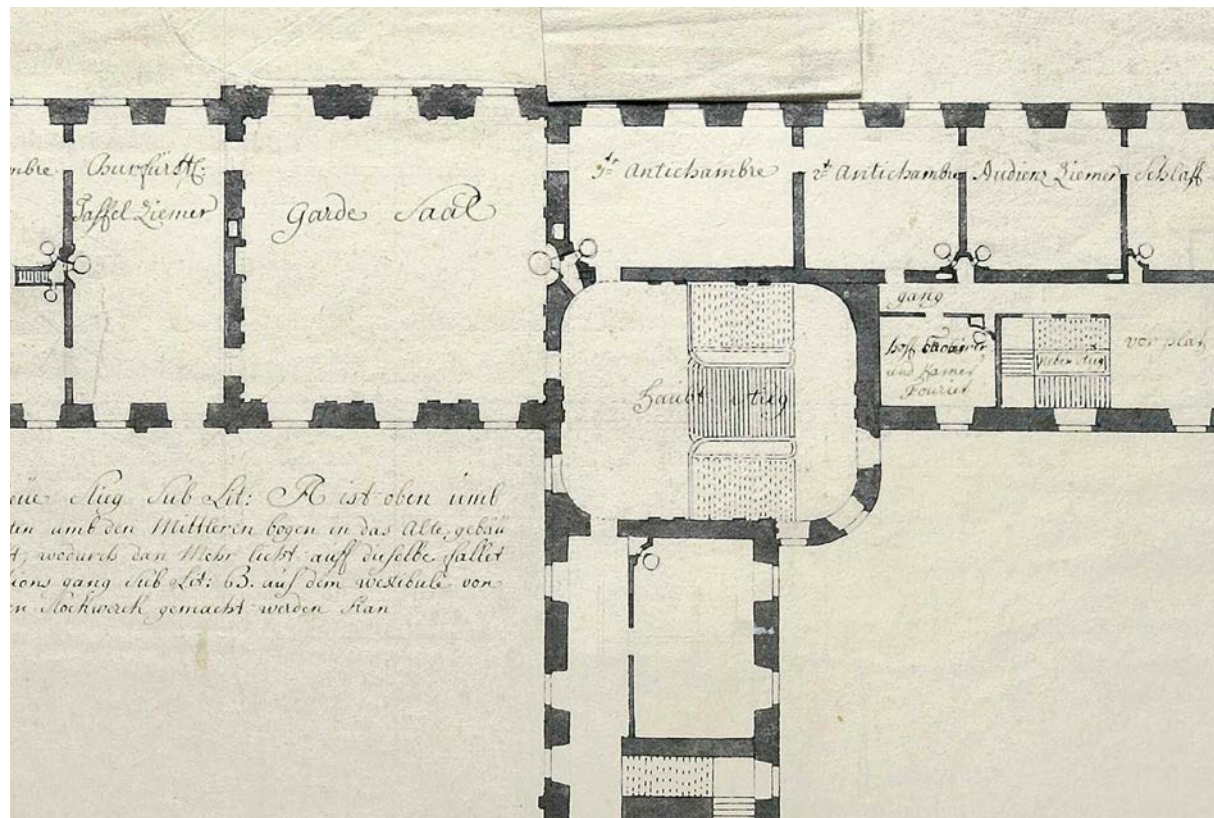 mbre
Churfürstl:
Taffel Ziemer
Garde Saal
1te Antichambre
2te Antichambre
Audienz Ziemer
Schlaff
gang
hoff
und Kamer
Fourier
Neben stieg
vor plat
Haubt stieg
eüe Stieg Sub Lit: A ist oben umb
ten umb den Mittleren bogen in das Alte gebäu
t, wodurch dan Mehr licht auff dieselbe fallet
tions gang Sub Lit: B. auß dem westibule von
en Stockwerck gemacht werden Kan